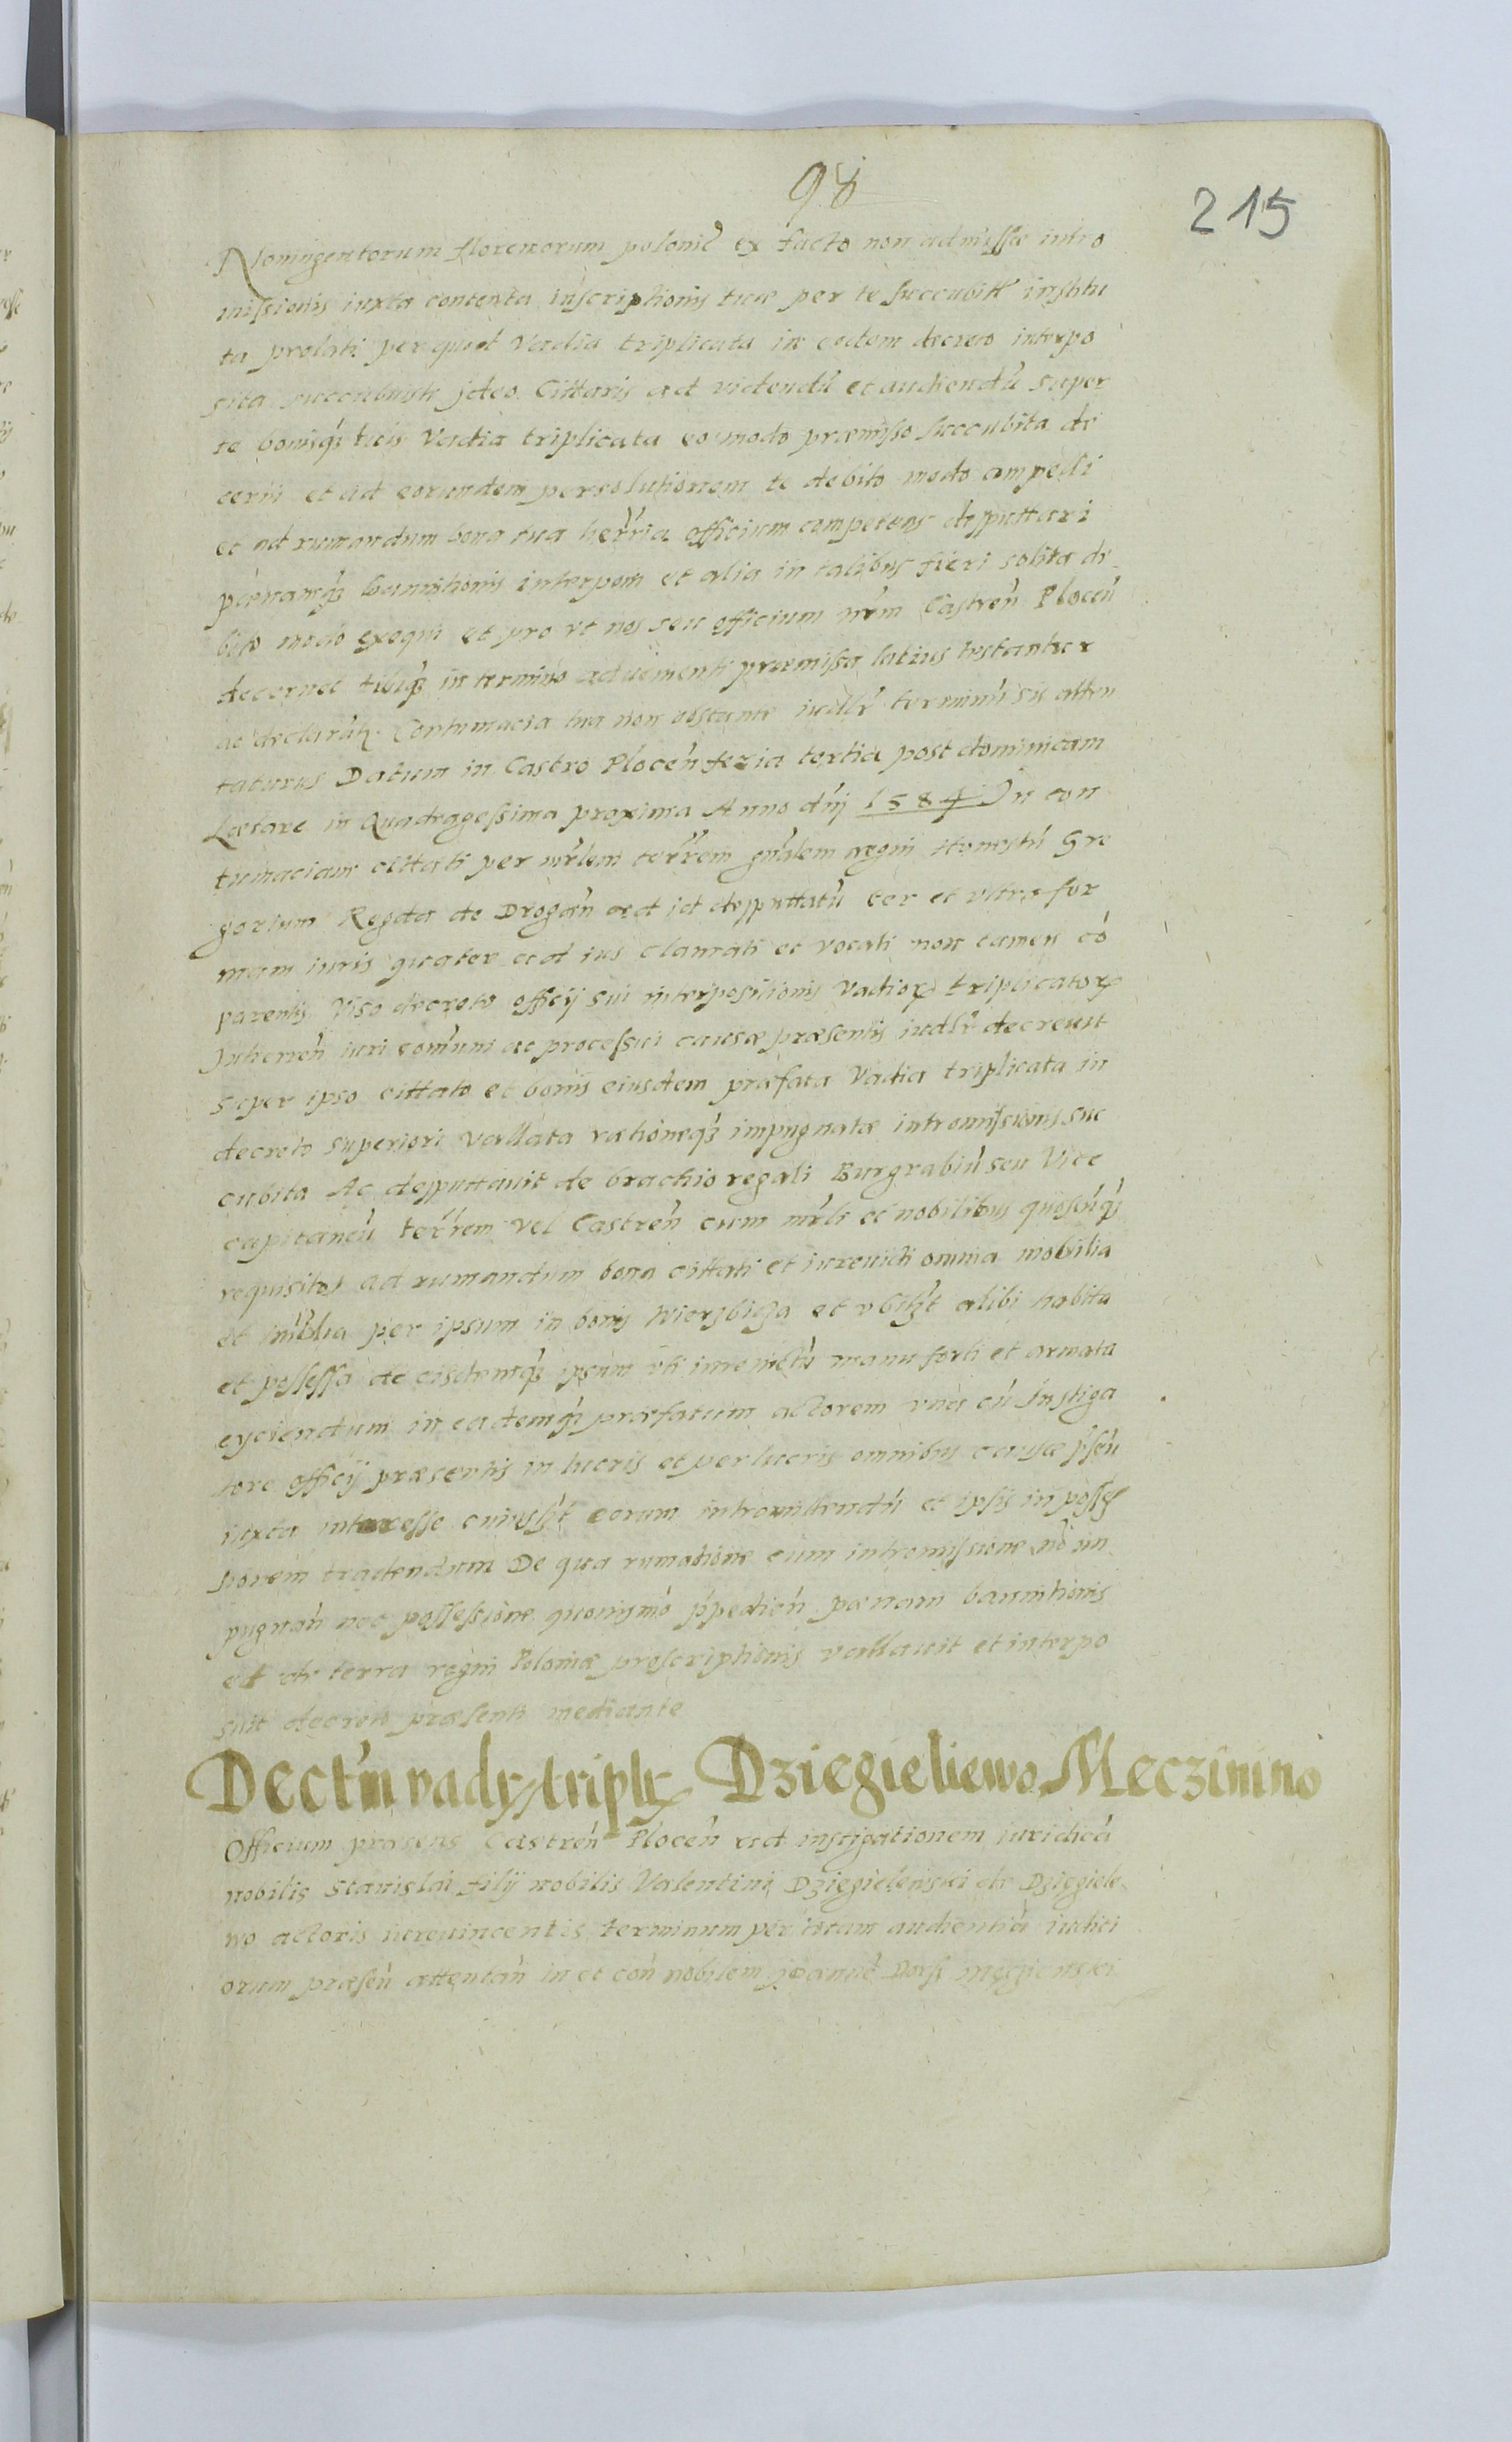 98
215
Noningentorum florenorum polonic ex facto non admissae intro
missionis iuxta contenta inscriptionis tuae per te succubitae institu
ta prolati per quod Vadia triplicata in eodem decreto interpo
sita succubuisti ideo Cittaris ad videndu et audiendu super
te bonisq tuis Vadia triplicata eo modo praemisso succubita de
cerni et ad eorundem persolutionem te debito modo ompelli
et ad rumandum bona tua herria officium competens desputtari
paenamq bannitionis interponi et alia in talibus fieri solita de
bito modo exequi et pro ut nos seu officium nrm Castren Plocen
decernet tibiq in termino adveniente praemissa latius testantur
ac declarab Contumacia tua non obstante iudlr terminu sis atten
taturus Datum in Castro Plocen feria tertia post dominicam
Laetare in Quadragessima proxima Anno dni 1584 In con
tumaciam cittati per mrlem terrem gnalem regni Honestu Gre
gorium Regda de Drogan ad id desputtatu ter et ultra for
mam iuris quater ad ius clamati et vocati non tamen co
parentis Viso decreto officij sui interpositionis Vadior triplicator
Inherren iuri comuni ac processui causae praesentis iudlr decrevit
super ipso cittato et bonis eiusdem praefata Vadia triplicata in
decreto superiori vallata rationeq impugnatae intromissionis suc
cubita Ac desputtavit de brachio regali Burgrabiu seu Vice
capitaneu terrem vel Castren cum mrli et nobilibus quoscuq
requisitos ad rumandum bona cittati et iurevicti omnia mobilia
et imblia per ipsum in bonis Wierzbicza et ubilzt alibi habita
et possessa de eisdemq ipsum uti iurevictu manu forti et armata
eyciendum in eademq praefatum actorem una cu Instiga
tore officij praesentis in lucris et perlucris omnibus causae psen
iuxta interesse cuiuslzt eorum intromittendu et ipsis in posses
sionem tradendum De qua rumatione eum intromissione no im
pugnan nec possessione quovismo ppedien paenam bannitionis
et de terra regni Poloniae proscriptionis vallavit et interpo
suit decreto praesenti mediante
Dectm vadij triplx Dziegieliewo Meczinino
Officium praesens Castren Plocen ad instigationem iuridica
nobilis Stanislai filij nobilis Valentini Dziegielewski de Dziegiele
wo actoris iurevincentis terminum per totam audientia iudici
orum praesen attentan in et con nobilem Joanne